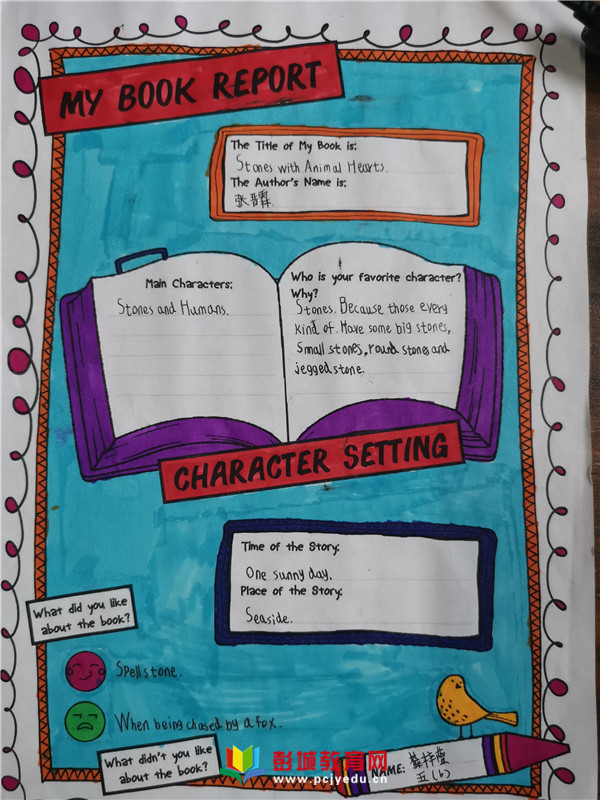 MY BOOK REPORT
The Title of My Book is:
Stones with Animal Hearts.
The Author's Name is:
张晋霖
Main Characters:
Stones and Humans.
Who is your favorite character?
Why?
Stones. Because those every
kind of. Have some big stones,
Small stones, round stones and
jegged stone.
CHARACTER SETTING
Time of the Story:
One sunny day.
Place of the Story:
Seaside.
What did you like
about the book?
Spell stone.
When being chased by a fox.
What didn't you like
about the book?
彭城教育网
www.pcjyedu.cn
NAME:
五(6)